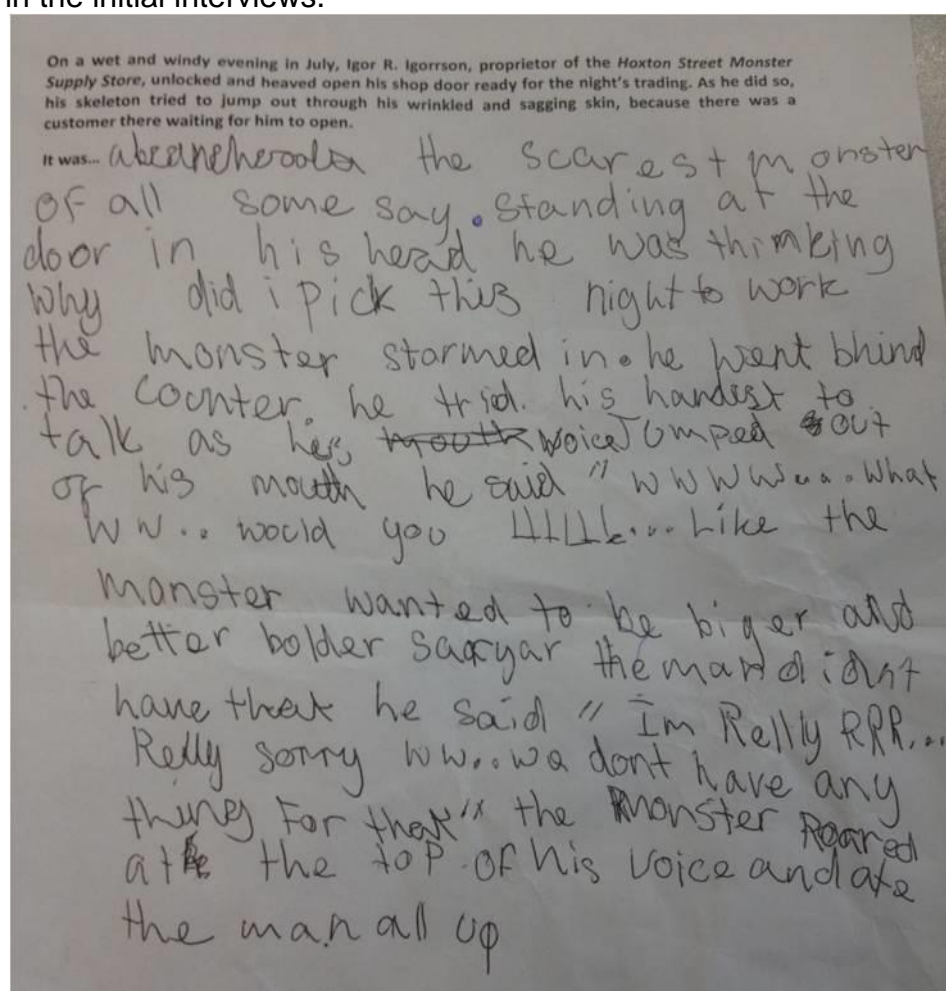 in the initial interviews.
On a wet and windy evening in July, Igor R. Igorrson, proprietor of the Hoxton Street Monster
Supply Store, unlocked and heaved open his shop door ready for the night's trading. As he did so,
his skeleton tried to jump out through his wrinkled and sagging skin, because there was a
customer there waiting for him to open.
It was... the scarest monster
of all some say. standing at the
door in his head he was thinking
why did i pick this night to work
the monster stormed in. he went bhind
the counter. he trid. his hardest to
talk as his voice Jumped out
of his mouth he said " wwww... what
ww.. would you LLLLL... Like the
monster wanted to be biger and
better bolder the man didnt
have that he said " Im Relly RRR...
Relly sorry ww..we dont have any
thing For that" the Monster Roared
at the top of his voice and ate
the man all up